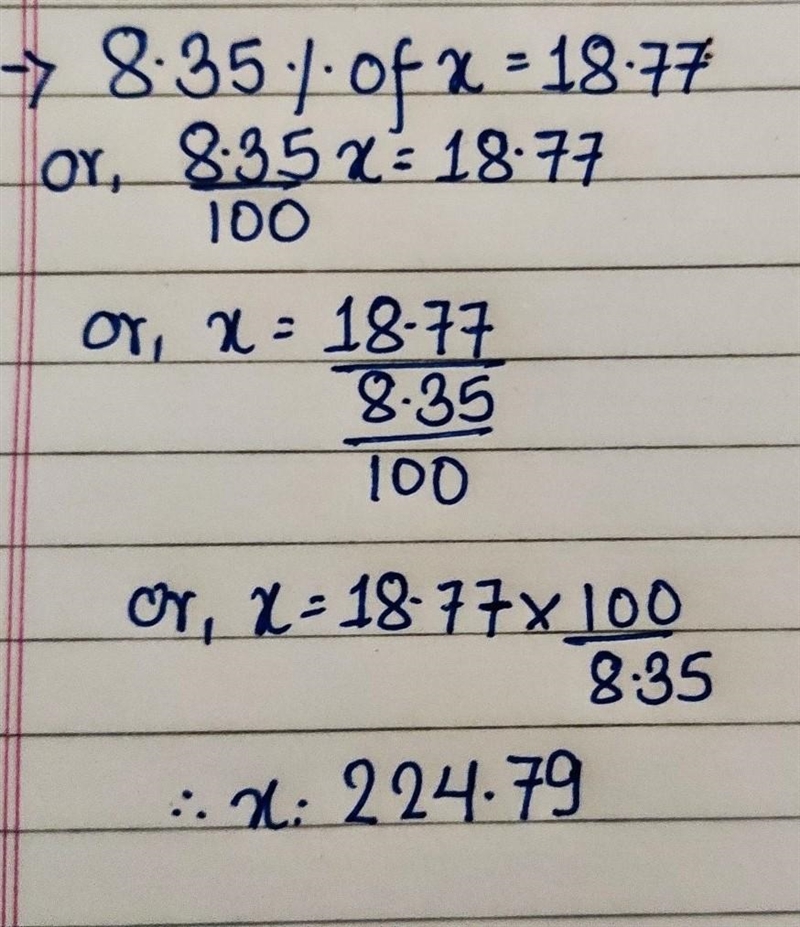 → 8.35 % of x = 18.77
or, 8.35 x = 18.77
100
or, x = 18.77
8.35
100
or, x = 18.77 × 100
8.35
∴ x . 224.79